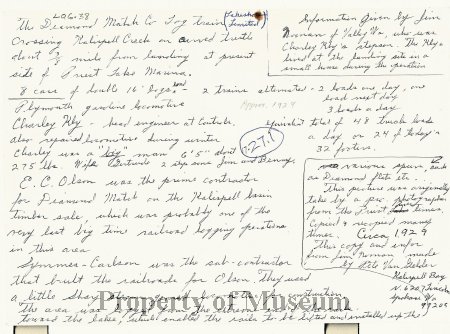 LOG-38
The Diamond Match Co Log train (Lakeshore Limited)
Crossing Kalispell Creek on curved trestle
about 1/2 mile from landing at present
site of Priest Lake Marina.
8 cars of double 16' logs, and
Plymouth gasoline locomotive
Charley Kly - head engineer at Controls.
also repaired locomotives during winter
Charley was a "big" man 6'5" about
275 lbs Wife Gertrude 2 stepsons Jim and Benny.
E. C. Olson was the prime contractor
for Diamond Match on the Kalispell basin
timber sale, which was probably one of the
very last big time railroad logging operations
in this area
Symmes-Carlson was the sub-contractor
that built the railroads for Olson. They used
a little Shay
The area was
toward the lake, which enabled the rails to be lifted and installed up the
Information given by Jim
Noonan of Valley Wa, who was
Charley Kly's stepson. The Kly's
lived at the landing site in a
small home during the operation
2 trains alternated - 2 loads one day, one
load next day
3 loads a day
Approx. 1929
equivalent total of 48 truck loads
a day or 24 of today's
32 footers.
7-27.1
various spurs, such
as Diamond flats etc.
This picture was originally
taken by a pro. photographer
from the Priest River Times,
Copied & recopied many
times. Circa 1929
This copy and info
from Jim Noonan made
by Pete Van Sickle
Kalispell Bay
Spokane Wa
99205
Property of Museum